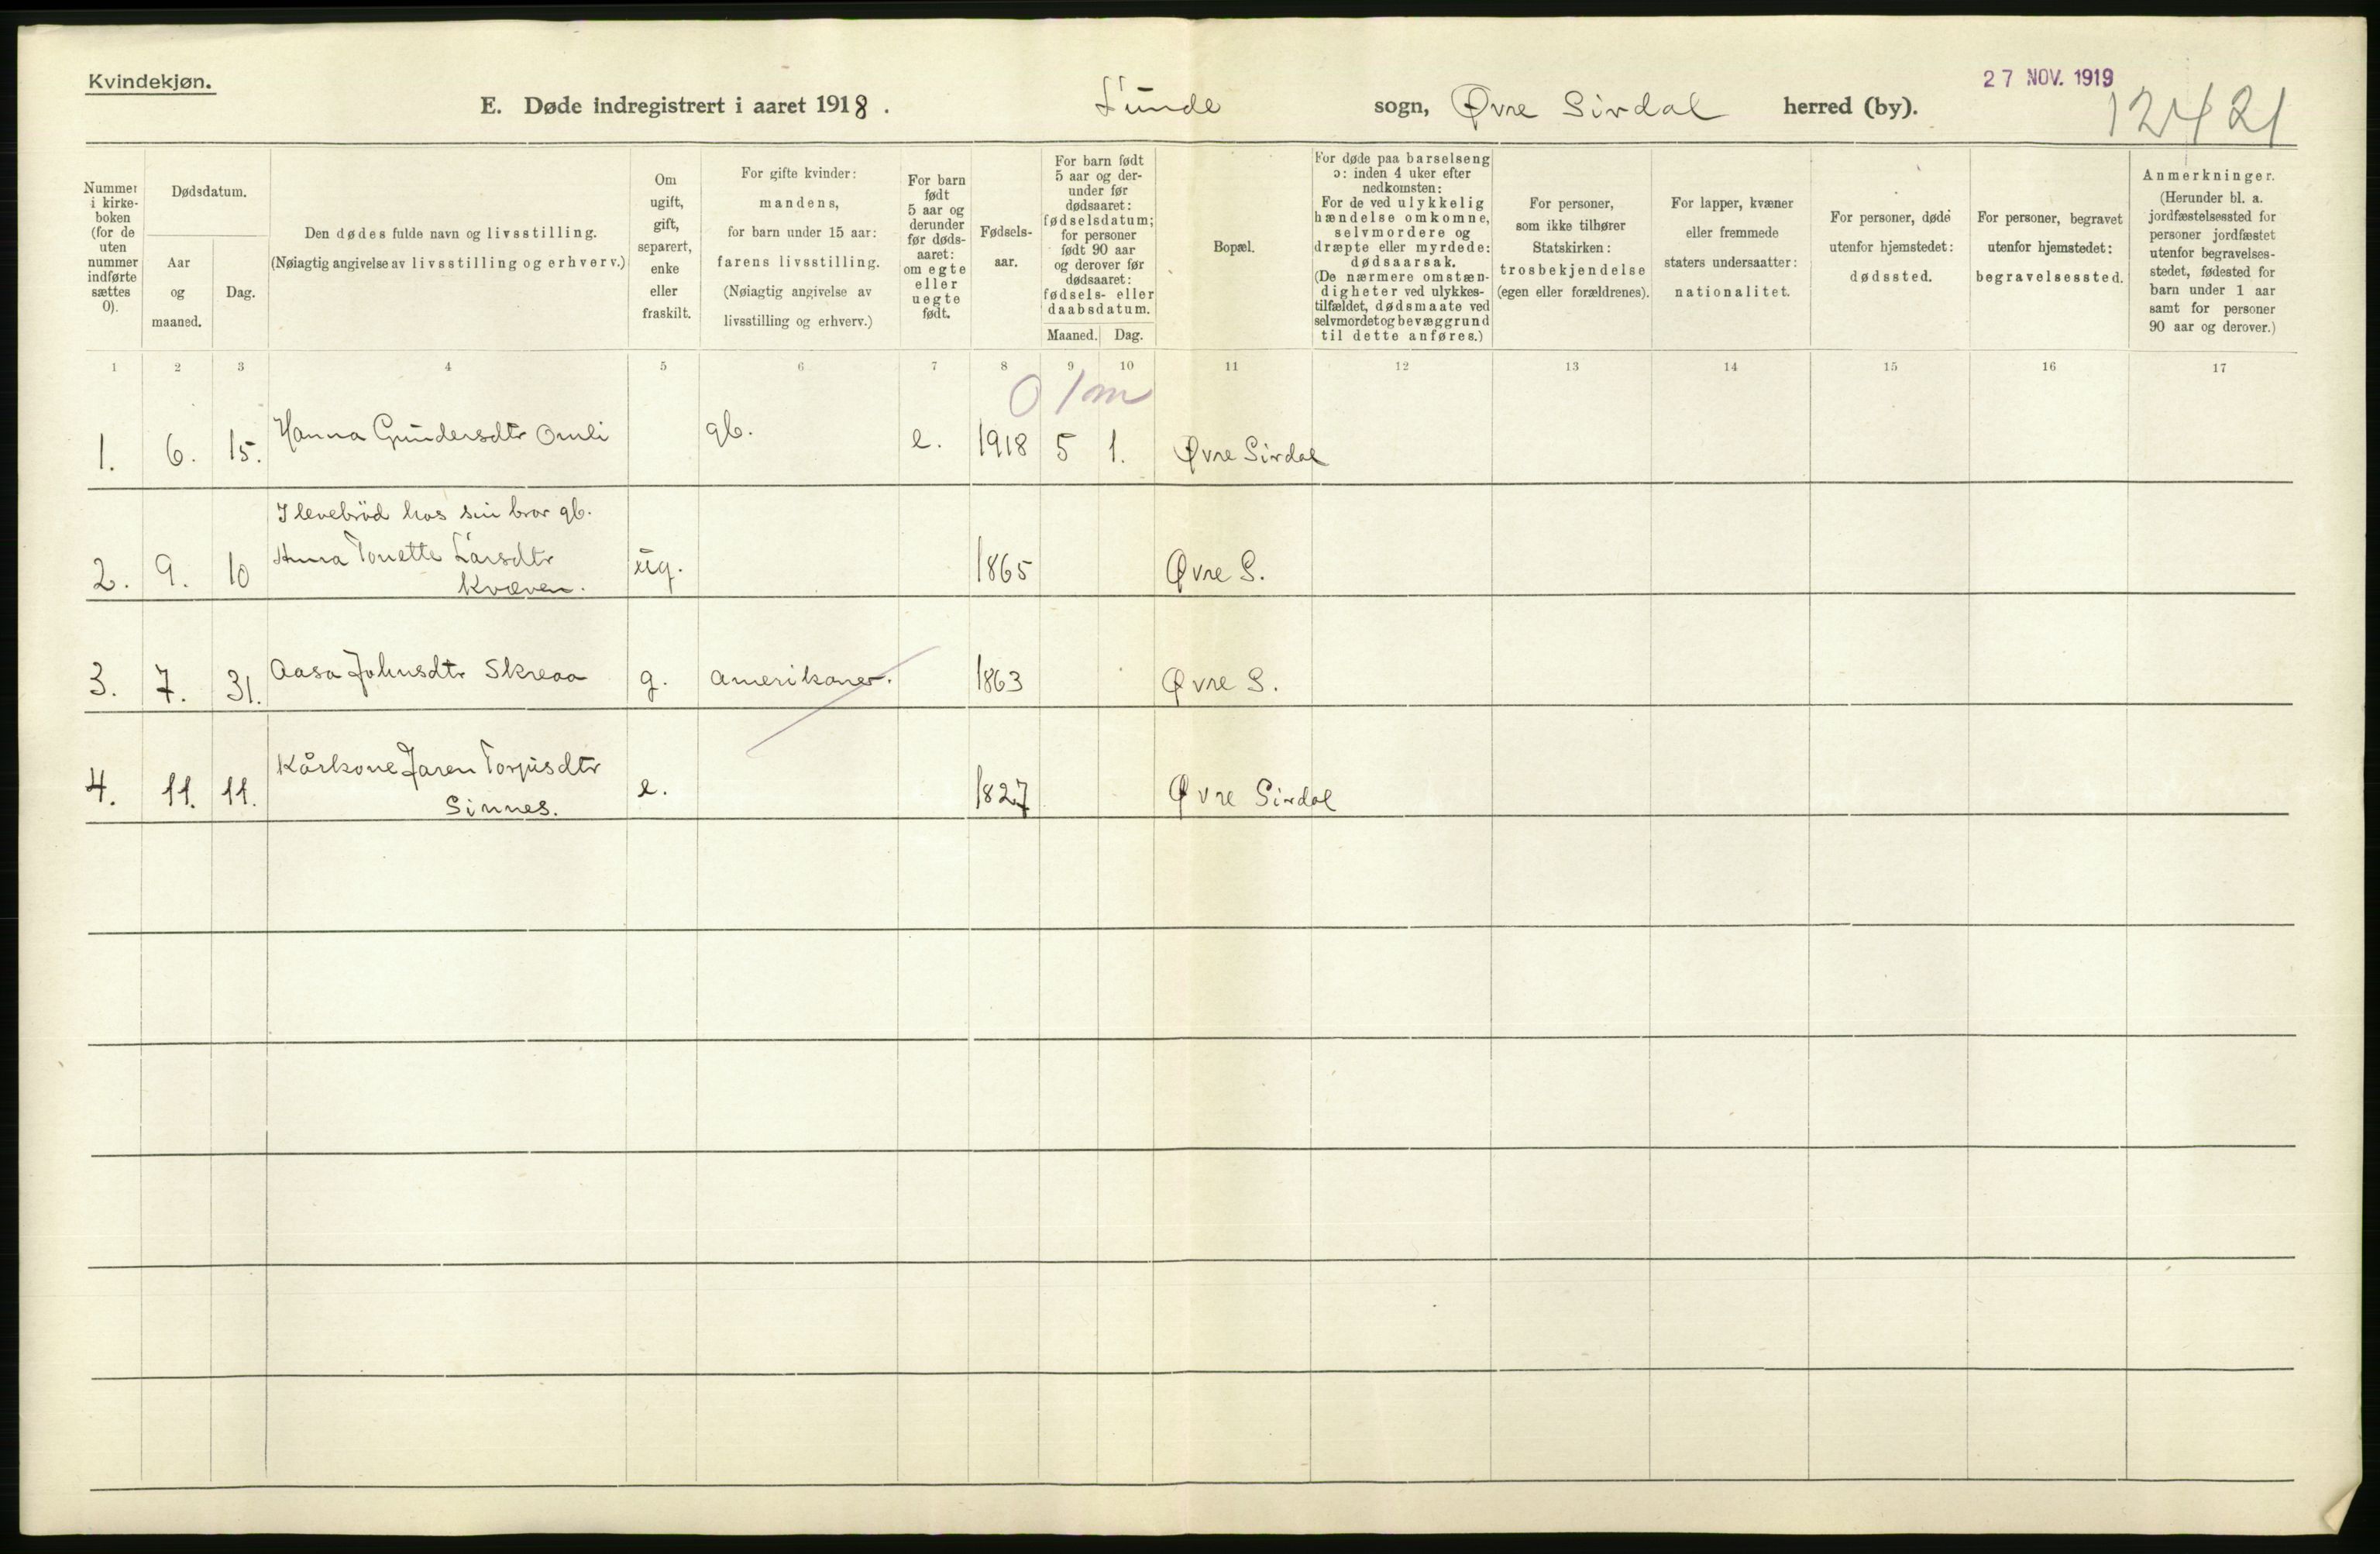 Kvindekjøn.
E. Døde indregistrert i aaret 1918. Lunde sogn, Øvre Sirdal herred (by).
27 NOV. 1919
12421
Nummer i kirkeboken (for de uten nummer indførte sættes 0).
Dødsdatum.
Aar og maaned.
Dag.
Den dødes fulde navn og livsstilling.
(Nøiagtig angivelse av livsstilling og erhverv.)
Om ugift, gift, separert, enke eller fraskilt.
For gifte kvinder:
mandens,
for barn under 15 aar:
farens livsstilling.
(Nøiagtig angivelse av
livsstilling og erhverv.)
For barn født 5 aar og derunder før dødsaaret: om egte eller uegte født.
Fødselsaar.
For barn født
5 aar og der-
under før
dødsaaret:
fødselsdatum;
for personer
født 90 aar
og derover før
dødsaaret:
fødsels- eller
daabsdatum.
Maaned. Dag.
Bopæl.
For døde paa barselseng
ɔ: inden 4 uker efter
nedkomsten:
For de ved ulykkelig
hændelse omkomne,
selvmordere og
dræpte eller myrdede:
dødsaarsak.
(De nærmere omstæn-
digheter ved ulykkes-
tilfældet, dødsmaate ved
selvmordet og bevæggrund
til dette anføres.)
For personer,
som ikke tilhører
Statskirken:
trosbekjendelse
(egen eller forældrenes).
For lapper, kvæner
eller fremmede
staters undersaatter:
nationalitet.
For personer, døde
utenfor hjemstedet:
dødssted.
For personer, begravet
utenfor hjemstedet:
begravelsessted.
Anmerkninger.
(Herunder bl. a.
jordfæstelsessted for
personer jordfæstet
utenfor begravelses-
stedet, fødested for
barn under 1 aar
samt for personer
90 aar og derover.)
1 2 3 4 5 6 7 8 9 10 11 12 13 14 15 16 17
0 1m
1. 6. 15. Hanna Gundersdtr Omli gb. e. 1918 5 1. Øvre Sirdal
I levebröd hos sin bror gb.
2. 9. 10 Anna Tonette Larsdtr ug. 1865 Øvre S.
Kvæven.
3. 7. 31. Aasa Johnsdtr Skreaa g. amerikaner. 1863 Øvre S.
4. 11. 11. Kårkone Jaren Torjusdtr e. 1827 Øvre Sirdal
Sinnes.